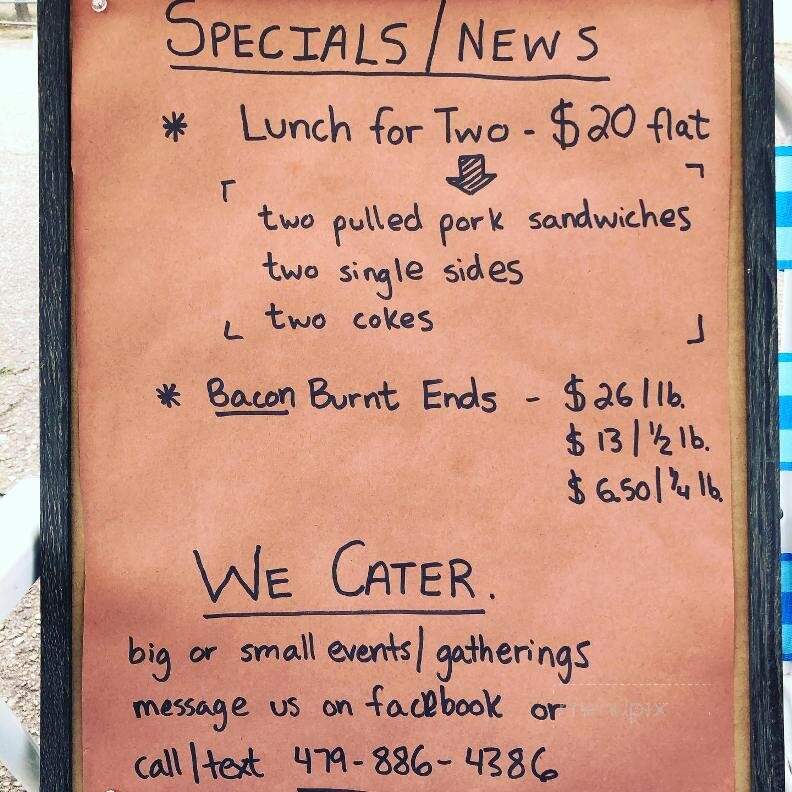 SPECIALS/NEWS
* Lunch for Two - $20 flat
two pulled pork sandwiches
two single sides
two cokes
* Bacon Burnt Ends - $26/lb.
$13/½ lb.
$6.50/¼ lb.
WE CATER.
big or small events/gatherings
message us on facebook or
call/text 479-886-4386